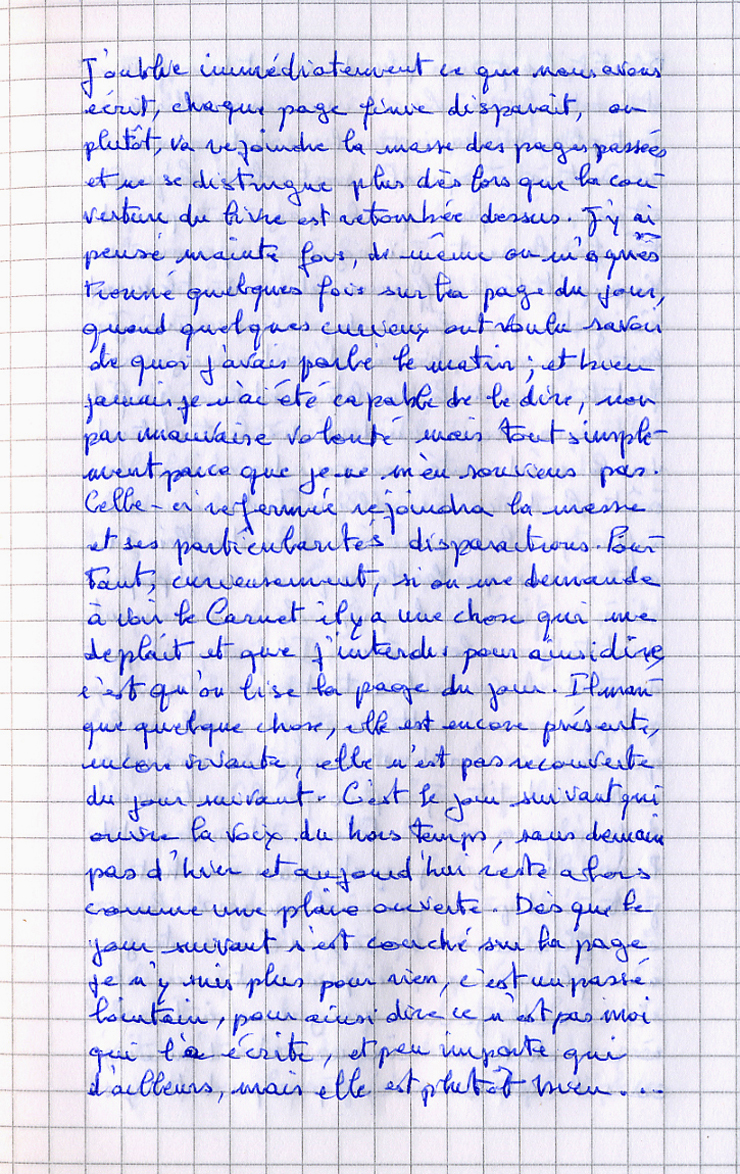 J'oublie immédiatement ce que nous avons
écrit, chaque page finie disparait, ou
plutôt, va rejoindre la masse des pages passées
et ne se distingue plus dès lors que la cou
verture du livre est retombée dessus. J'y ai
pensé mainte fois, de même on m'a
trouvé quelques fois sur la page du jour,
quand quelques curieux ont voulu savoir
de quoi j'avais parlé le matin ; et bien
jamais je n'ai été capable de le dire, non
par mauvaise volonté mais tout simple-
ment parce que je ne m'en souviens pas.
Celle-ci refermée rejoindra la masse
et ses particularités disparaitrons. Pour
tant, curieusement, si on me demande
à voir le Carnet il y a une chose qui me
deplait et que j'interdis pour ainsi dire,
c'est qu'on lise la page du jour. Il man
que quelque chose, elle est encore présente,
encore vivante, elle n'est pas recouverte
du jour suivant. C'est le jour suivant qui
ouvre la voix du hors temps, sans demain
pas d'hier et aujourd'hui reste alors
comme une plaie ouverte. Dès que le
jour suivant s'est couché sur la page
je n'y suis plus pour rien, c'est un passé
lointain, pour ainsi dire ce n'est pas moi
qui l'a écrite, et peu importe qui
d'ailleurs, mais elle est plutôt bien....